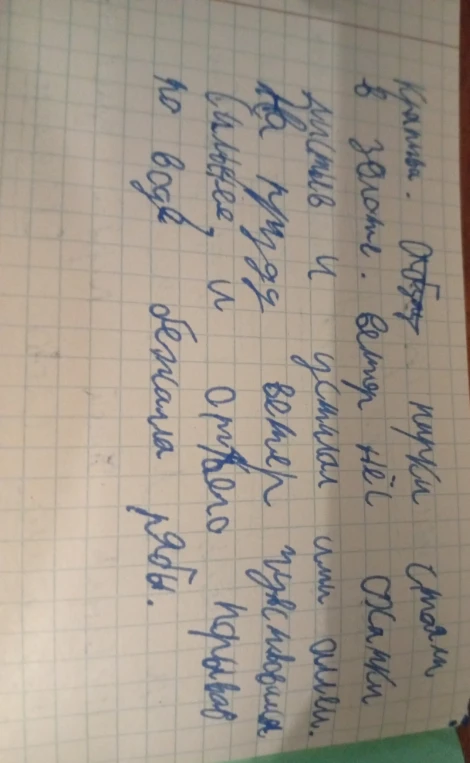 Крапива. парки стояли
в золоте. ветер нёс охапки
листьев и устилал ими аллеи.
На пруду ветер чувствовался
сильнее, и от его порывов
по воде бежала рябь.